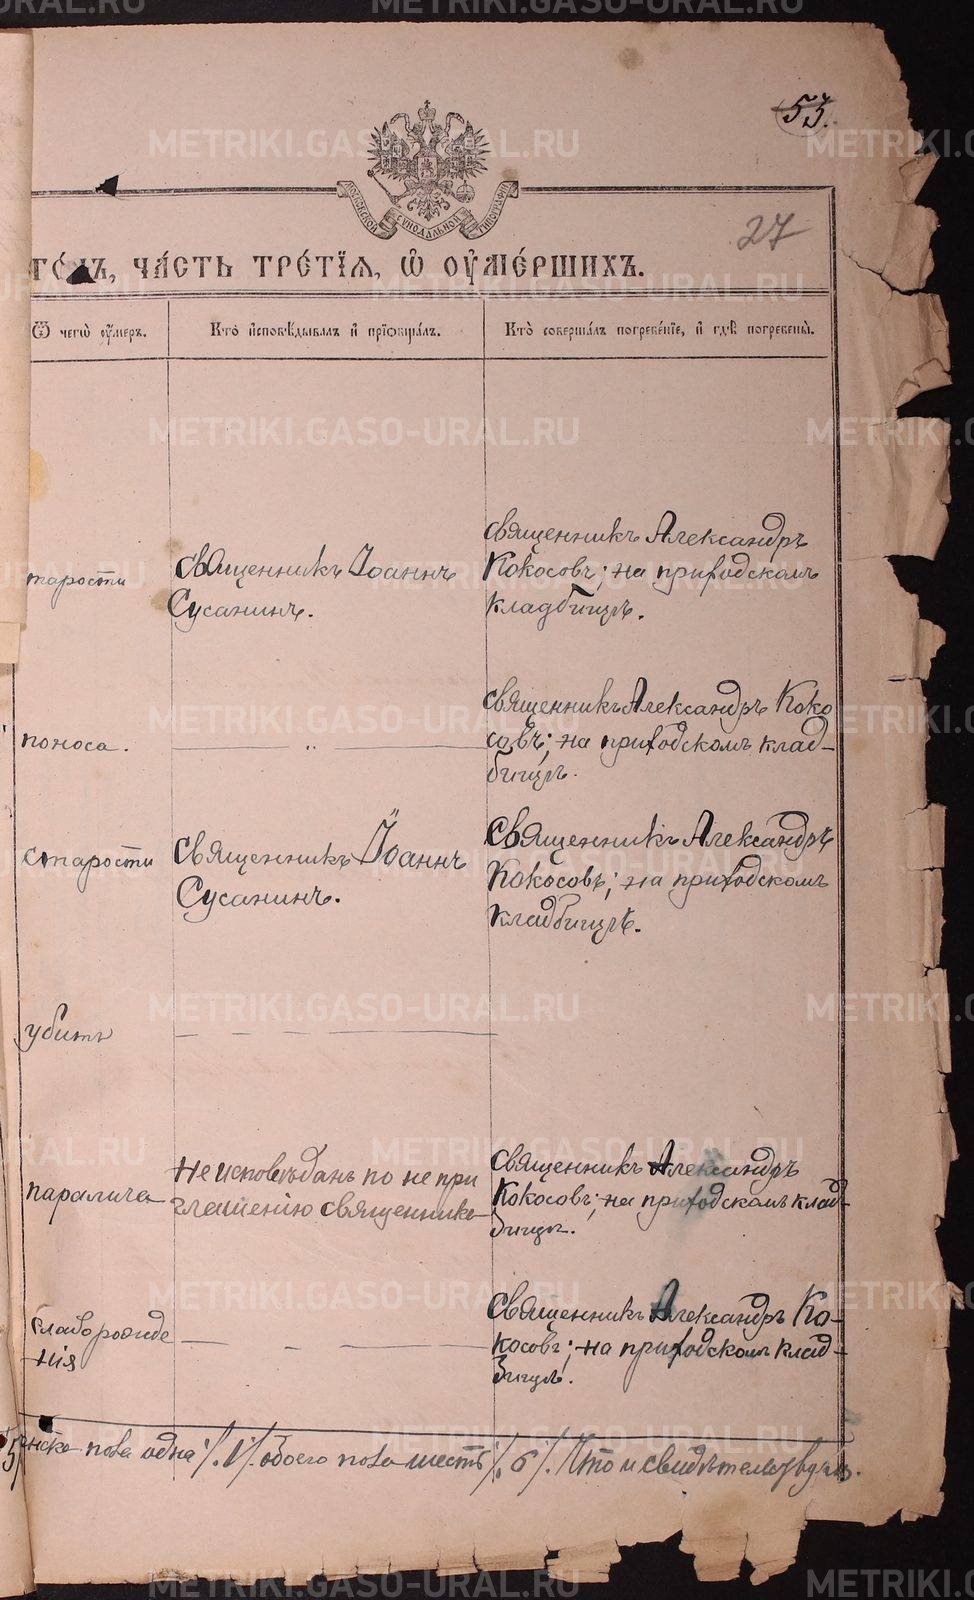 53.
27
МОСКОВСКОЙ СѴНОДАЛЬНОЙ ТИПОГРАФІИ
ГО́ДЪ, ЧА́СТЬ ТРЕ́ТІЯ, Ѽ ОУ҆МЕ́РШИХЪ.
Ѿ чегѡ̀ оу҆́меръ.
Кто̀ и҆сповѣ́дывалъ и҆ прїѡбща́лъ.
Кто̀ соверша́лъ погребе́нїе, и҆ гдѣ̀ погребены̀.
тарости
Священникъ Іоаннъ
Сусанинъ.
Священникъ Александръ
Кокосовъ; на приходскомъ
кладбищѣ.
поноса.
— " —
Священникъ Александръ Коко
совъ; на приходскомъ клад-
бищѣ.
старости
Священникъ Іоаннъ
Сусанинъ.
Священникъ Александръ
Кокосовъ; на приходскомъ
кладбищѣ.
убитъ
— — — —
паралича
Не исповѣданъ по не при
глашенію священника
Священникъ Александръ
Кокосовъ; на приходскомъ клад-
бищѣ.
слаборожде
нія
— — —
Священникъ Александръ Ко-
косовъ; на приходскомъ клад-
бищѣ.
5/ женска пола одна /.1/. обоего пола шесть /.6/. Что и свидѣтельствуемъ.
METRIKI.GASO-URAL.RU